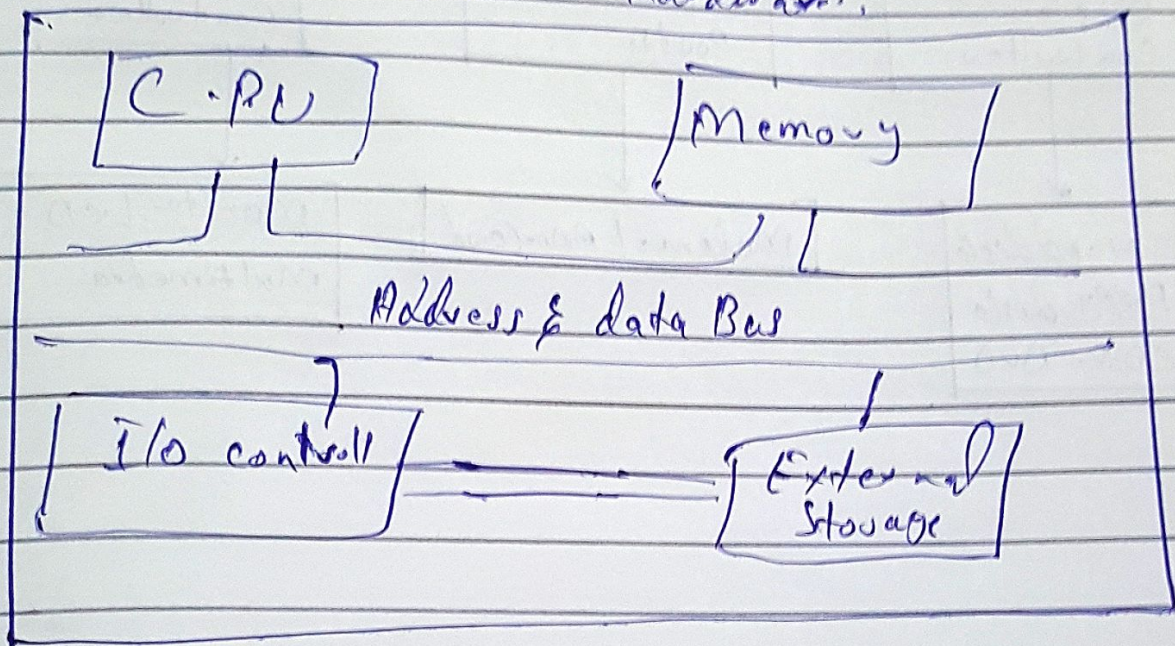 C.PU
Memory
Address & data Bus
I/o controll
External
Storage